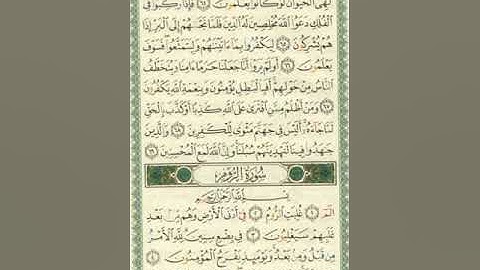 لَهِيَ الْحَيَوَانُ لَوْ كَانُوا يَعْلَمُونَ ٦٤ فَإِذَا رَكِبُوا فِي
الْفُلْكِ دَعَوُا اللَّهَ مُخْلِصِينَ لَهُ الدِّينَ فَلَمَّا نَجَّاهُمْ إِلَى الْبَرِّ إِذَا
هُمْ يُشْرِكُونَ ٦٥ لِيَكْفُرُوا بِمَا آتَيْنَاهُمْ وَلِيَتَمَتَّعُوا فَسَوْفَ
يَعْلَمُونَ ٦٦ أَوَلَمْ يَرَوْا أَنَّا جَعَلْنَا حَرَمًا آمِنًا وَيُتَخَطَّفُ
النَّاسُ مِنْ حَوْلِهِمْ أَفَبِالْبَاطِلِ يُؤْمِنُونَ وَبِنِعْمَةِ اللَّهِ يَكْفُرُونَ
٦٧ وَمَنْ أَظْلَمُ مِمَّنِ افْتَرَى عَلَى اللَّهِ كَذِبًا أَوْ كَذَّبَ بِالْحَقِّ
لَمَّا جَاءَهُ أَلَيْسَ فِي جَهَنَّمَ مَثْوًى لِلْكَافِرِينَ ٦٨ وَالَّذِينَ
جَاهَدُوا فِينَا لَنَهْدِيَنَّهُمْ سُبُلَنَا وَإِنَّ اللَّهَ لَمَعَ الْمُحْسِنِينَ ٦٩
سُورَةُ الرُّومِ
بِسْمِ اللَّهِ الرَّحْمَٰنِ الرَّحِيمِ
الم ١ غُلِبَتِ الرُّومُ ٢ فِي أَدْنَى الْأَرْضِ وَهُمْ مِنْ بَعْدِ
غَلَبِهِمْ سَيَغْلِبُونَ ٣ فِي بِضْعِ سِنِينَ لِلَّهِ الْأَمْرُ
مِنْ قَبْلُ وَمِنْ بَعْدُ وَيَوْمَئِذٍ يَفْرَحُ الْمُؤْمِنُونَ ٤